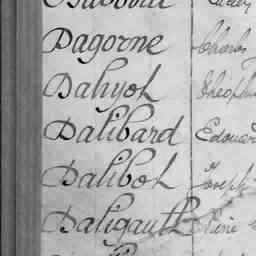 Dagorne Charles
Dahyot Théophile
Dalibard Edouard
Dalibot Joseph
Daligault René